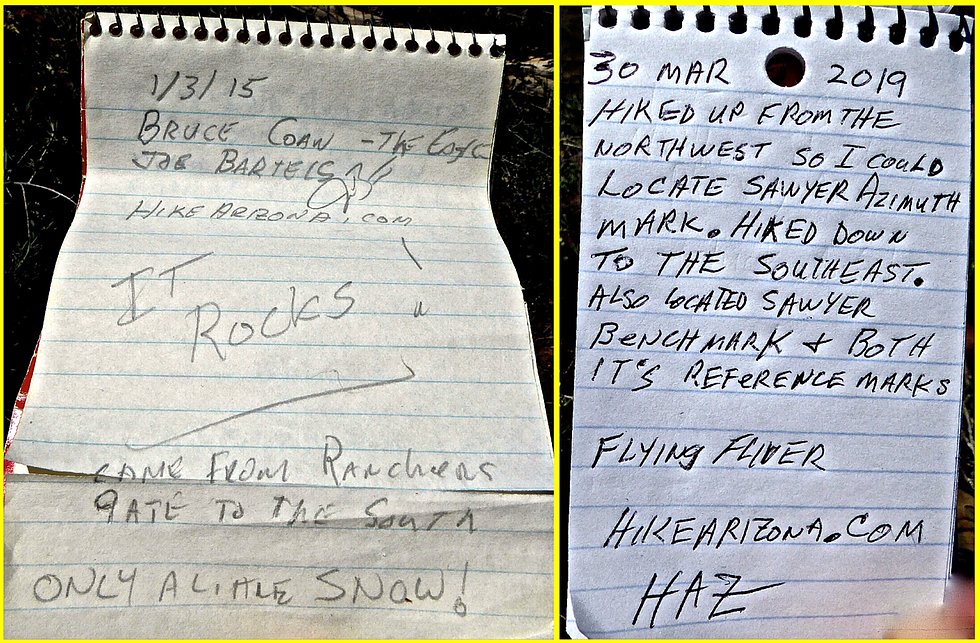 1/3/15
BRUCE COAN - THE
JOB BARTELS
HIKEARIZONA.COM
IT
ROCKS
CAME FROM RANCHERS
GATE TO THE SOUTH
ONLY A SNOW!
30 MAR 2019
HIKED UP FROM THE
NORTHWEST SO I COULD
LOCATE SAWYER AZIMUTH
MARK. HIKED DOWN
TO THE SOUTHEAST.
ALSO LOCATED SAWYER
BENCHMARK & BOTH
IT'S REFERENCE MARKS
FLYING FLIVER
HIKEARIZONA.COM
HAZ